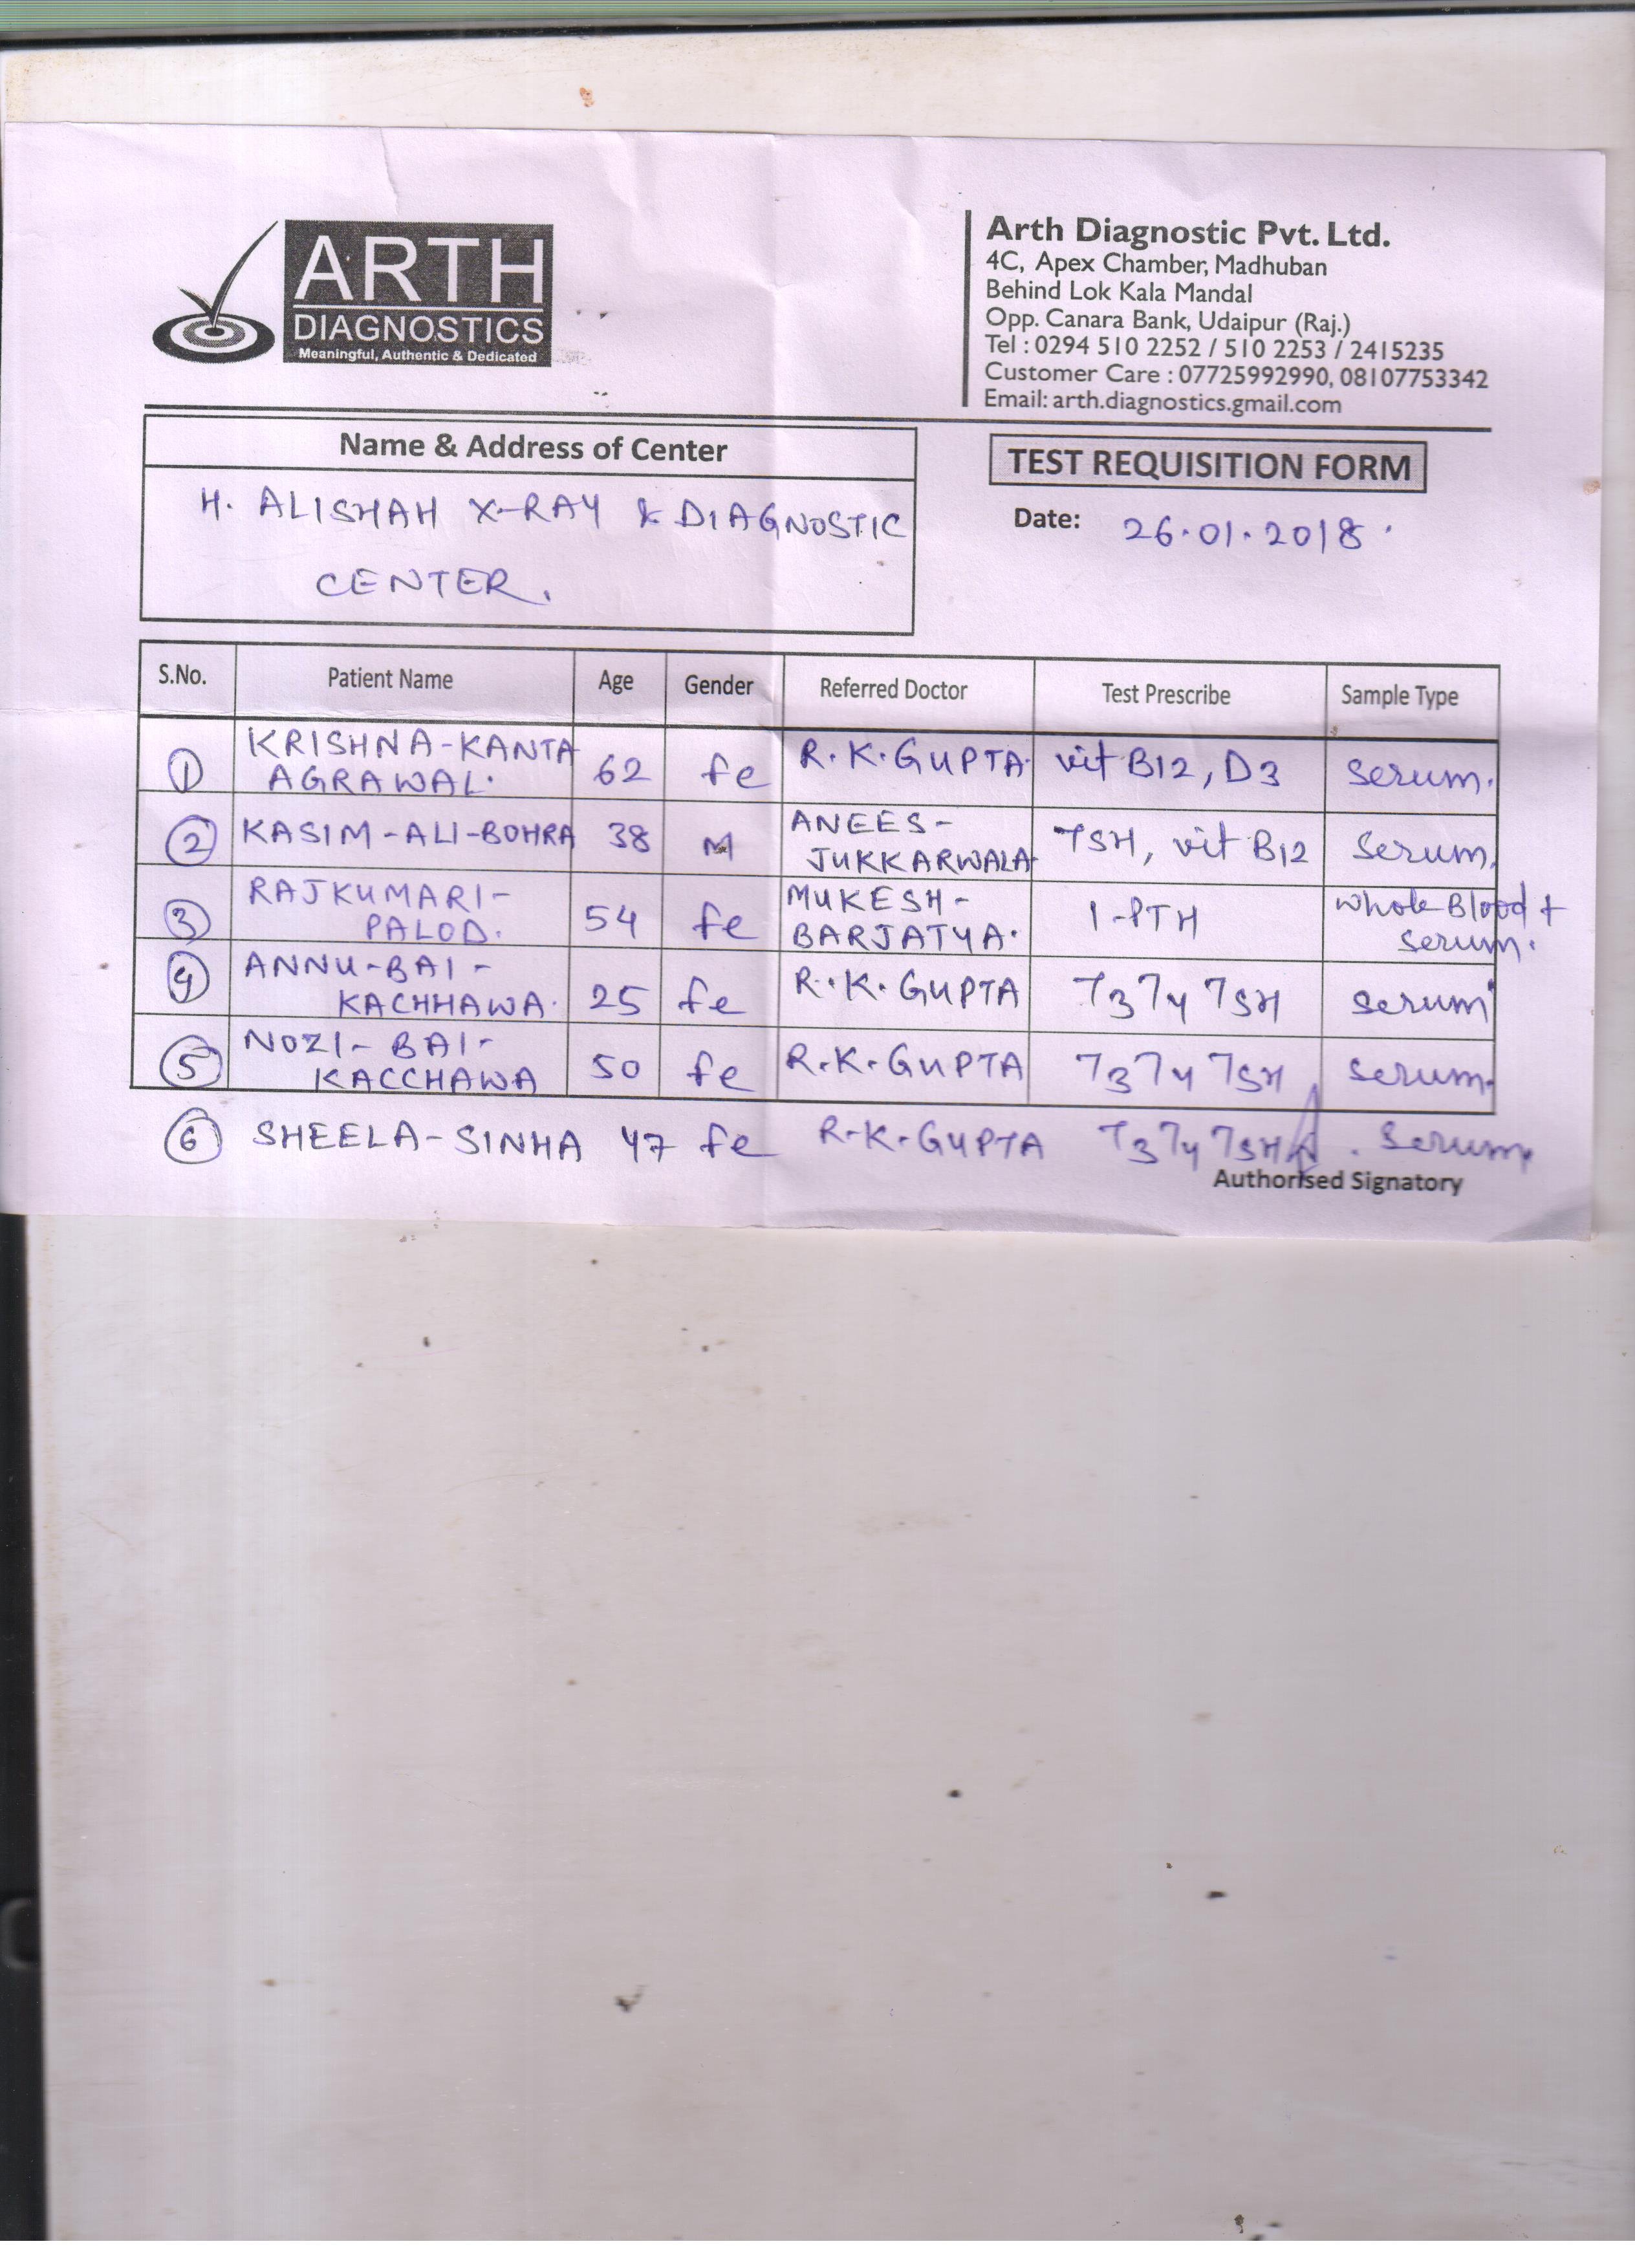 ARTH
DIAGNOSTICS
Meaningful, Authentic & Dedicated
Arth Diagnostic Pvt. Ltd.
4C, Apex Chamber, Madhuban
Behind Lok Kala Mandal
Opp. Canara Bank, Udaipur (Raj.)
Tel : 0294 510 2252 / 510 2253 / 2415235
Customer Care : 07725992990, 08107753342
Email: arth.diagnostics.gmail.com
Name & Address of Center
H. ALISHAH X-RAY & DIAGNOSTIC
CENTER.
TEST REQUISITION FORM
Date: 26.01.2018.
S.No. Patient Name Age Gender Referred Doctor Test Prescribe Sample Type
1 KRISHNA-KANTA AGRAWAL. 62 fe R.K.GUPTA. vit B12, D3 serum.
2 KASIM-ALI-BOHRA 38 M ANEES-JUKKARWALA TSH, vit B12 serum.
3 RAJKUMARI-PALOD. 54 fe MUKESH-BARJATYA. I-PTH whole Blood + serum.
4 ANNU-BAI-KACHHAWA. 25 fe R.K.GUPTA T3 T4 TSH serum
5 NOZI-BAI-KACCHAWA 50 fe R.K.GUPTA T3 T4 TSH serum.
6 SHEELA-SINHA 47 fe R.K.GUPTA T3 T4 TSH. serum
Authorised Signatory